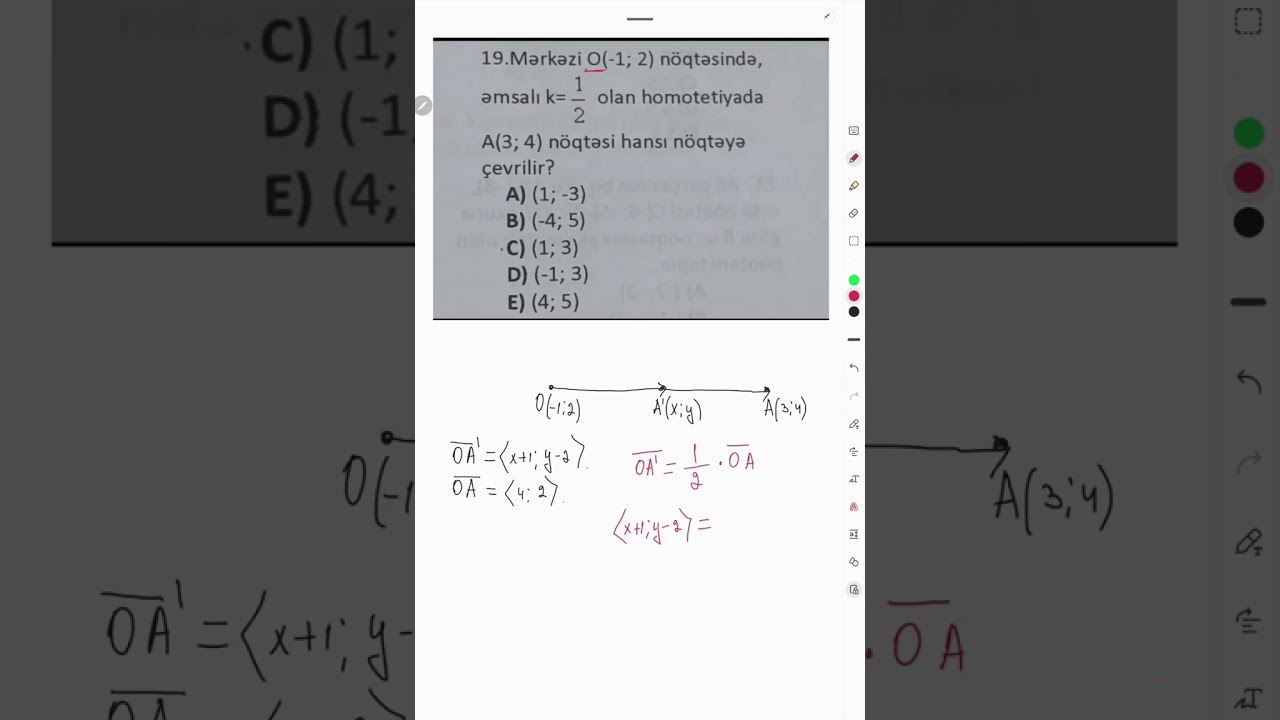 19.Mərkəzi O(-1; 2) nöqtəsində,
əmsalı k= 1/2 olan homotetiyada
A(3; 4) nöqtəsi hansı nöqtəyə
çevrilir?
A) (1; -3)
B) (-4; 5)
C) (1; 3)
D) (-1; 3)
E) (4; 5)
O(-1;2) A'(x;y) A(3;4)
OA' = ⟨x+1; y-2⟩.
OA = ⟨4; 2⟩.
OA' = 1/2 · OA
⟨x+1; y-2⟩ =
C) (1;
D) (-1
E) (4;
O(-1
A(3;4)
OA' = ⟨x+1; y-
· OA